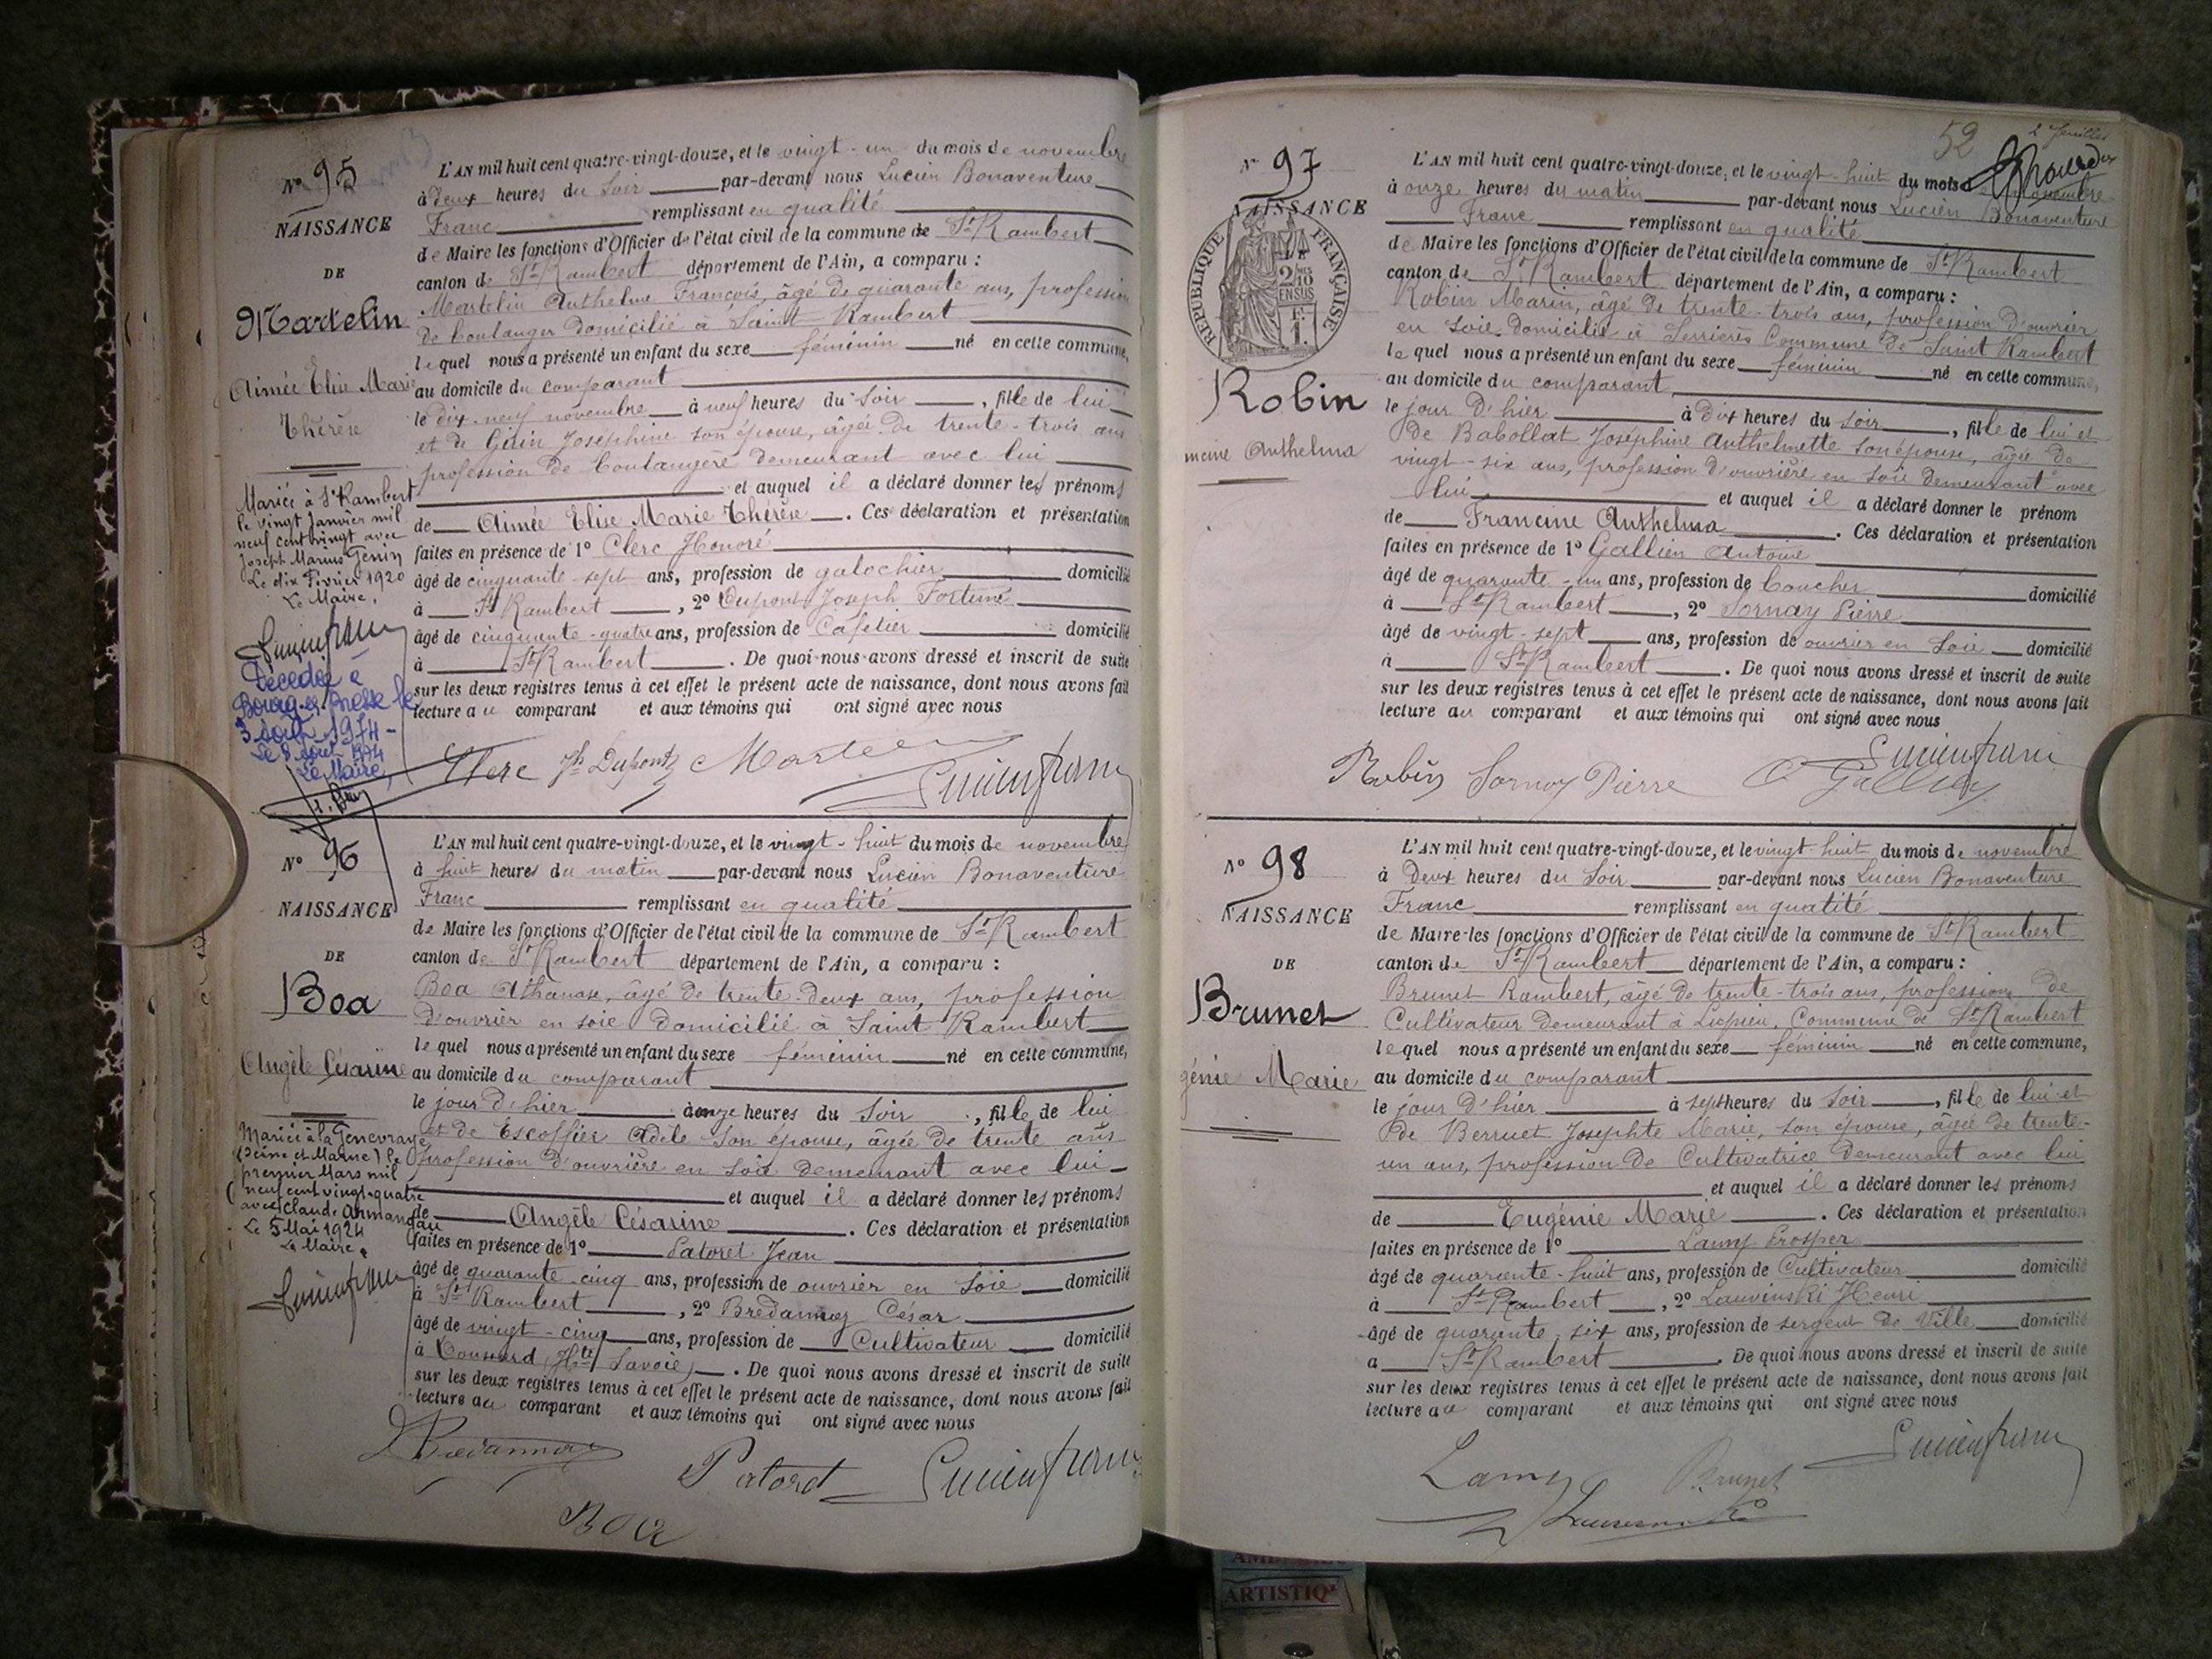 Nº 95
NAISSANCE
DE
Martelin
Aimée Élise Marie
Thérèse
Mariée à St Rambert
le vingt Janvier mil
neuf cent vingt avec
Joseph Marius
Le dix Février 1920
Le Maire,
Lucien Franc
Décédée à
Bourg-en-Bresse le
3 août 1974 -
Le 8 août 1974
Le Maire,
L'AN mil huit cent quatre-vingt-douze, et le vingt-un du mois de novembre
à deux heures du soir par-devant nous Lucien Bonaventure
Franc remplissant en qualité
de Maire les fonctions d'Officier de l'état civil de la commune de St Rambert
canton de St Rambert département de l'Ain, a comparu :
Martelin Anthelme François, âgé de quarante ans, profession
de boulanger domicilié à Saint Rambert
lequel nous a présenté un enfant du sexe féminin né en cette commune,
au domicile du comparant
le dix neuf novembre à neuf heures du soir, fille de lui
et de Joséphine son épouse, âgée de trente-trois ans
profession de boulangère demeurant avec lui
et auquel il a déclaré donner les prénoms
de Aimée Élise Marie Thérèse. Ces déclaration et présentation
faites en présence de 1º Clerc Honoré
âgé de cinquante-sept ans, profession de galochier domicilié
à St Rambert, 2º Dupont Joseph Fortuné
âgé de cinquante-quatre ans, profession de Cafetier domicilié
à St Rambert. De quoi nous avons dressé et inscrit de suite
sur les deux registres tenus à cet effet le présent acte de naissance, dont nous avons fait
lecture au comparant et aux témoins qui ont signé avec nous
Clerc Jh Dupont Martelin Lucien Franc
Nº 96
NAISSANCE
DE
Boa
Angèle Césarine
Mariée à la Genevraye
(Seine et Marne) le
premier Mars mil
neuf cent vingt-quatre
avec Claude Armand
Le 5 Mai 1924
Le Maire,
Lucien Franc
L'AN mil huit cent quatre-vingt-douze, et le vingt-huit du mois de novembre
à huit heures du matin par-devant nous Lucien Bonaventure
Franc remplissant en qualité
de Maire les fonctions d'Officier de l'état civil de la commune de St Rambert
canton de St Rambert département de l'Ain, a comparu :
Boa Athanase, âgé de trente-deux ans, profession
d'ouvrier en soie domicilié à Saint Rambert
lequel nous a présenté un enfant du sexe féminin né en cette commune,
au domicile du comparant
le jour d'hier à onze heures du soir, fille de lui
et de Escoffier Adèle son épouse, âgée de trente ans
profession d'ouvrière en soie demeurant avec lui
et auquel il a déclaré donner les prénoms
de Angèle Césarine. Ces déclaration et présentation
faites en présence de 1º Patoret Jean
âgé de quarante cinq ans, profession de ouvrier en soie domicilié
à St Rambert, 2º Bredannaz César
âgé de vingt-cinq ans, profession de Cultivateur domicilié
à Doussard (Hte Savoie). De quoi nous avons dressé et inscrit de suite
sur les deux registres tenus à cet effet le présent acte de naissance, dont nous avons fait
lecture au comparant et aux témoins qui ont signé avec nous
Bredannaz Patoret Lucien Franc
Boa
52
2 feuilles
Nº 97
NAISSANCE
RÉPUBLIQUE FRANÇAISE
2/10 EN SUS
F. 1.
Robin
Anthelma
L'AN mil huit cent quatre-vingt-douze, et le vingt-huit du mois de novembre
à onze heures du matin par-devant nous Lucien Bonaventure
Franc remplissant en qualité
de Maire les fonctions d'Officier de l'état civil de la commune de St Rambert
canton de St Rambert département de l'Ain, a comparu :
Robin Marin, âgé de trente-trois ans, profession d'ouvrier
en soie domicilié à Serrières Commune de Saint Rambert
lequel nous a présenté un enfant du sexe féminin né en cette commune,
au domicile du comparant
le jour d'hier à dix heures du soir, fille de lui et
de Babollat Joséphine Anthelmette son épouse, âgée de
vingt-six ans, profession d'ouvrière en soie demeurant avec
lui et auquel il a déclaré donner le prénom
de Francine Anthelma. Ces déclaration et présentation
faites en présence de 1º Gallien Antoine
âgé de quarante-un ans, profession de boucher domicilié
à St Rambert, 2º Sornay Pierre
âgé de vingt-sept ans, profession de ouvrier en soie domicilié
à St Rambert. De quoi nous avons dressé et inscrit de suite
sur les deux registres tenus à cet effet le présent acte de naissance, dont nous avons fait
lecture au comparant et aux témoins qui ont signé avec nous
Robin Sornay Pierre A Gallien Lucien Franc
Nº 98
NAISSANCE
DE
Brunet
génie Marie
L'AN mil huit cent quatre-vingt-douze, et le vingt-huit du mois de novembre
à deux heures du soir par-devant nous Lucien Bonaventure
Franc remplissant en qualité
de Maire les fonctions d'Officier de l'état civil de la commune de St Rambert
canton de St Rambert département de l'Ain, a comparu :
Brunet Rambert, âgé de trente-trois ans, profession de
Cultivateur demeurant à Lupieu, Commune de St Rambert
lequel nous a présenté un enfant du sexe féminin né en cette commune,
au domicile du comparant
le jour d'hier à sept heures du soir, fille de lui et
de Berruet Josephte Marie, son épouse, âgée de trente-
un ans, profession de Cultivatrice demeurant avec lui
et auquel il a déclaré donner les prénoms
de Eugénie Marie. Ces déclaration et présentation
faites en présence de 1º Lamy Prosper
âgé de quarante-huit ans, profession de Cultivateur domicilié
à St Rambert, 2º Lauvinski Henri
âgé de quarante-six ans, profession de sergent de Ville domicilié
à St Rambert. De quoi nous avons dressé et inscrit de suite
sur les deux registres tenus à cet effet le présent acte de naissance, dont nous avons fait
lecture au comparant et aux témoins qui ont signé avec nous
Lamy Brunet Lucien Franc
ARTISTIQ